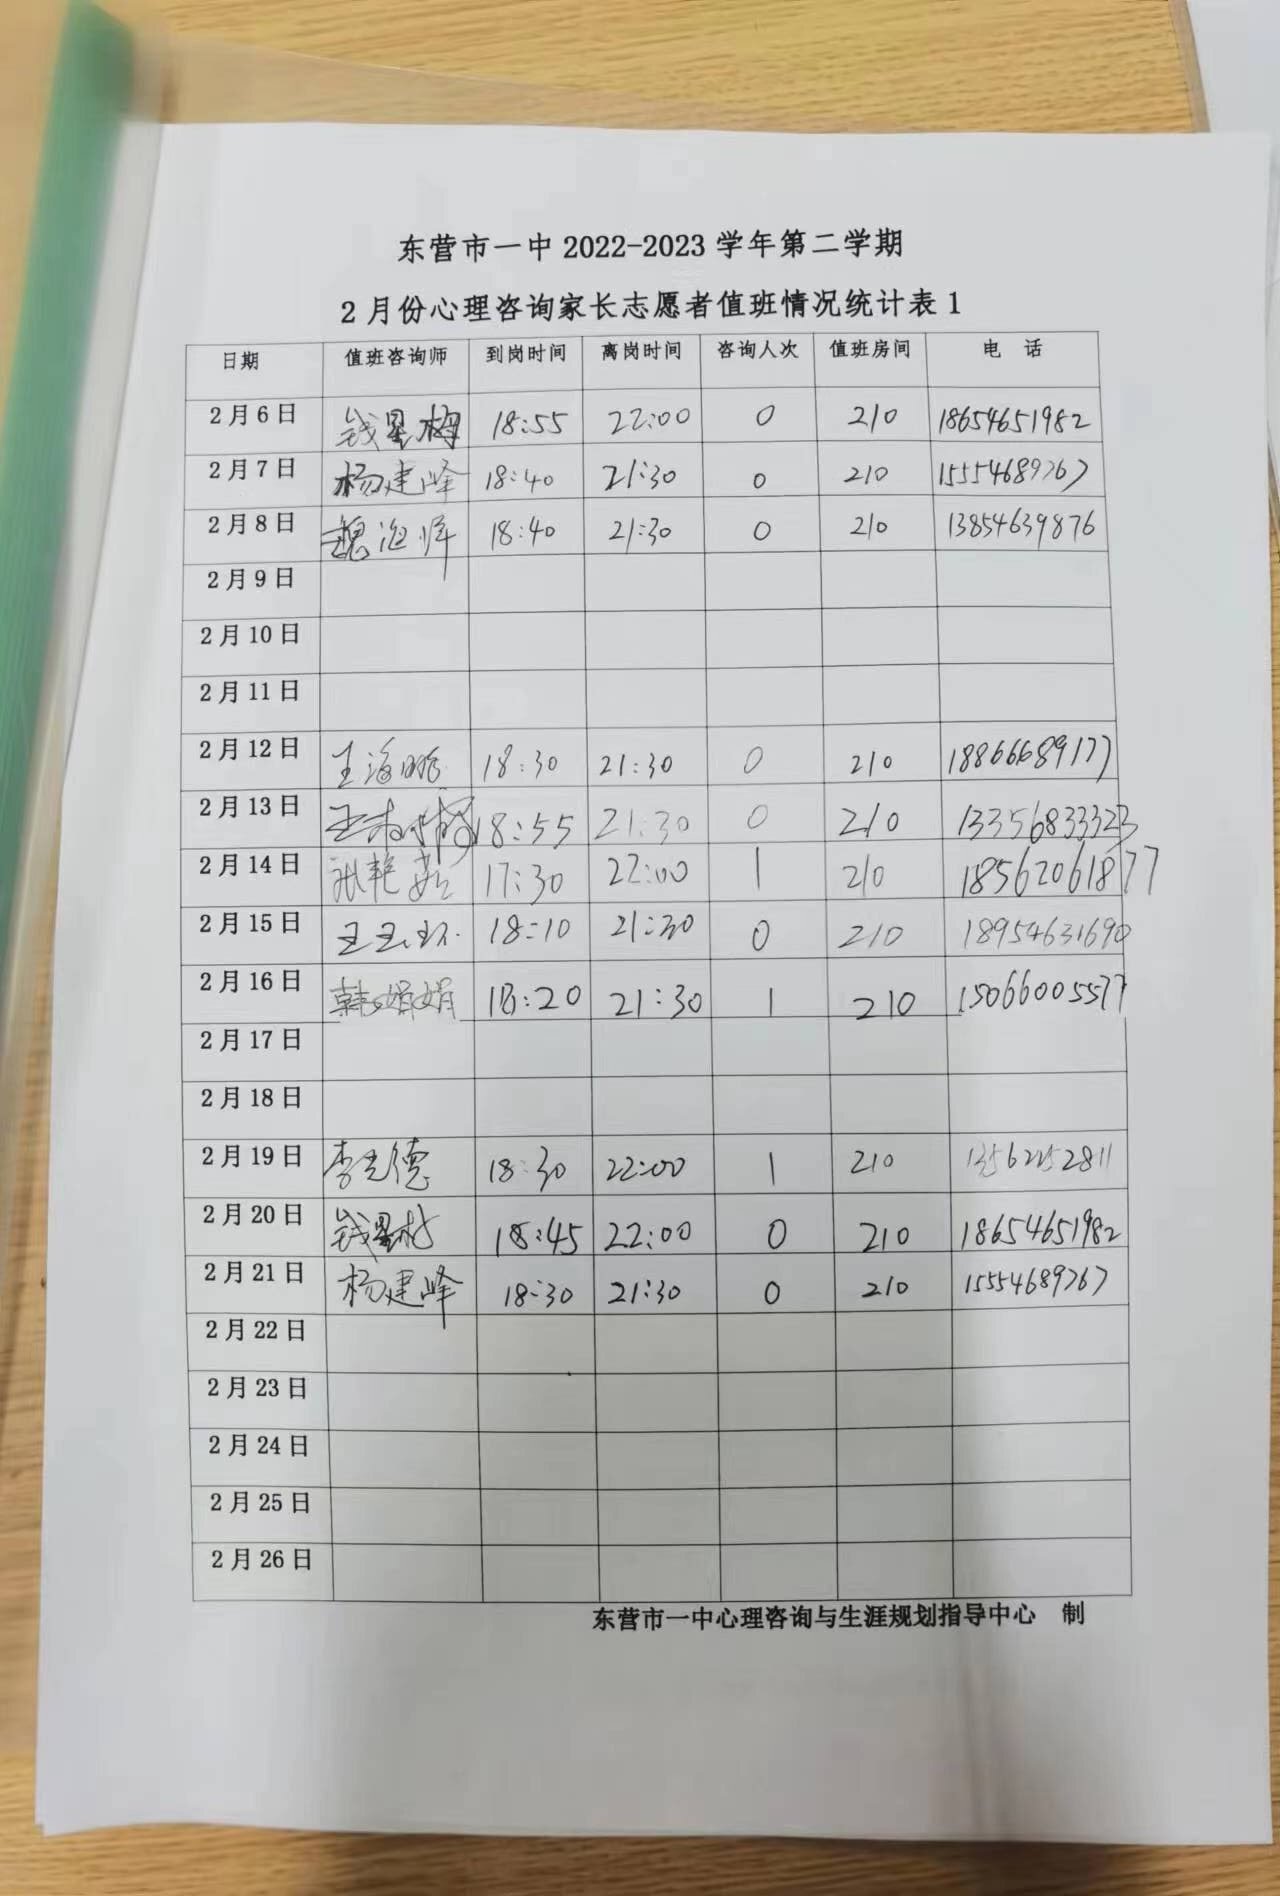 东营市一中 2022-2023 学年第二学期
2 月份心理咨询家长志愿者值班情况统计表 1
日期 值班咨询师 到岗时间 离岗时间 咨询人次 值班房间 电 话
2 月 6 日 钱星梅 18:55 22:00 0 210 18654651982
2 月 7 日 杨建峰 18:40 21:30 0 210 15554689767
2 月 8 日 魏海 18:40 21:30 0 210 13854639876
2 月 9 日
2 月 10 日
2 月 11 日
2 月 12 日 王海鹏 18:30 21:30 0 210 18866689177
2 月 13 日 王 18:55 21:30 0 210 13356833323
2 月 14 日 张艳 17:30 22:00 1 210 18562061877
2 月 15 日 王玉环 18:10 21:30 0 210 18954631690
2 月 16 日 韩娟娟 18:20 21:30 1 210 15066005577
2 月 17 日
2 月 18 日
2 月 19 日 李光德 18:30 22:00 1 210
2 月 20 日 钱星梅 18:45 22:00 0 210 18654651982
2 月 21 日 杨建峰 18:30 21:30 0 210 15554689767
2 月 22 日
2 月 23 日
2 月 24 日
2 月 25 日
2 月 26 日
东营市一中心理咨询与生涯规划指导中心 制